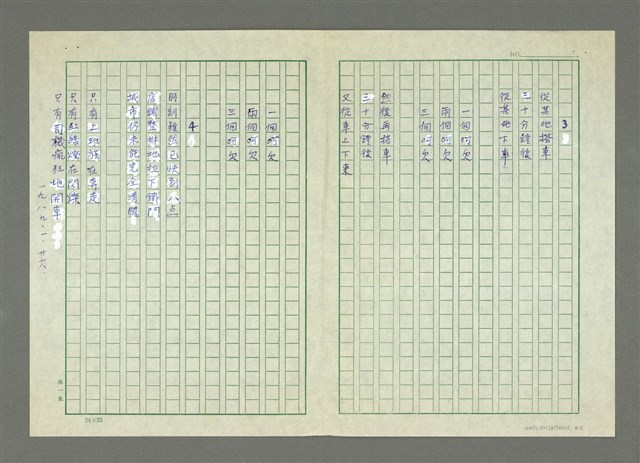 NO.
3
從某地搭車
三十分鐘後
從某地下車
一個呵欠
兩個呵欠
三個呵欠
然後再搭車
三十分鐘後
又從車上下來
一個呵欠
兩個呵欠
三個呵欠
4
時刻雖然已快到八点
店鋪整排地拉下鐵門
城市仍未能完全清醒
只有上班族在奔走
只有紅綠燈在閃爍
只有司機瘋狂地開車
一九八九.一.廿六.
24×25